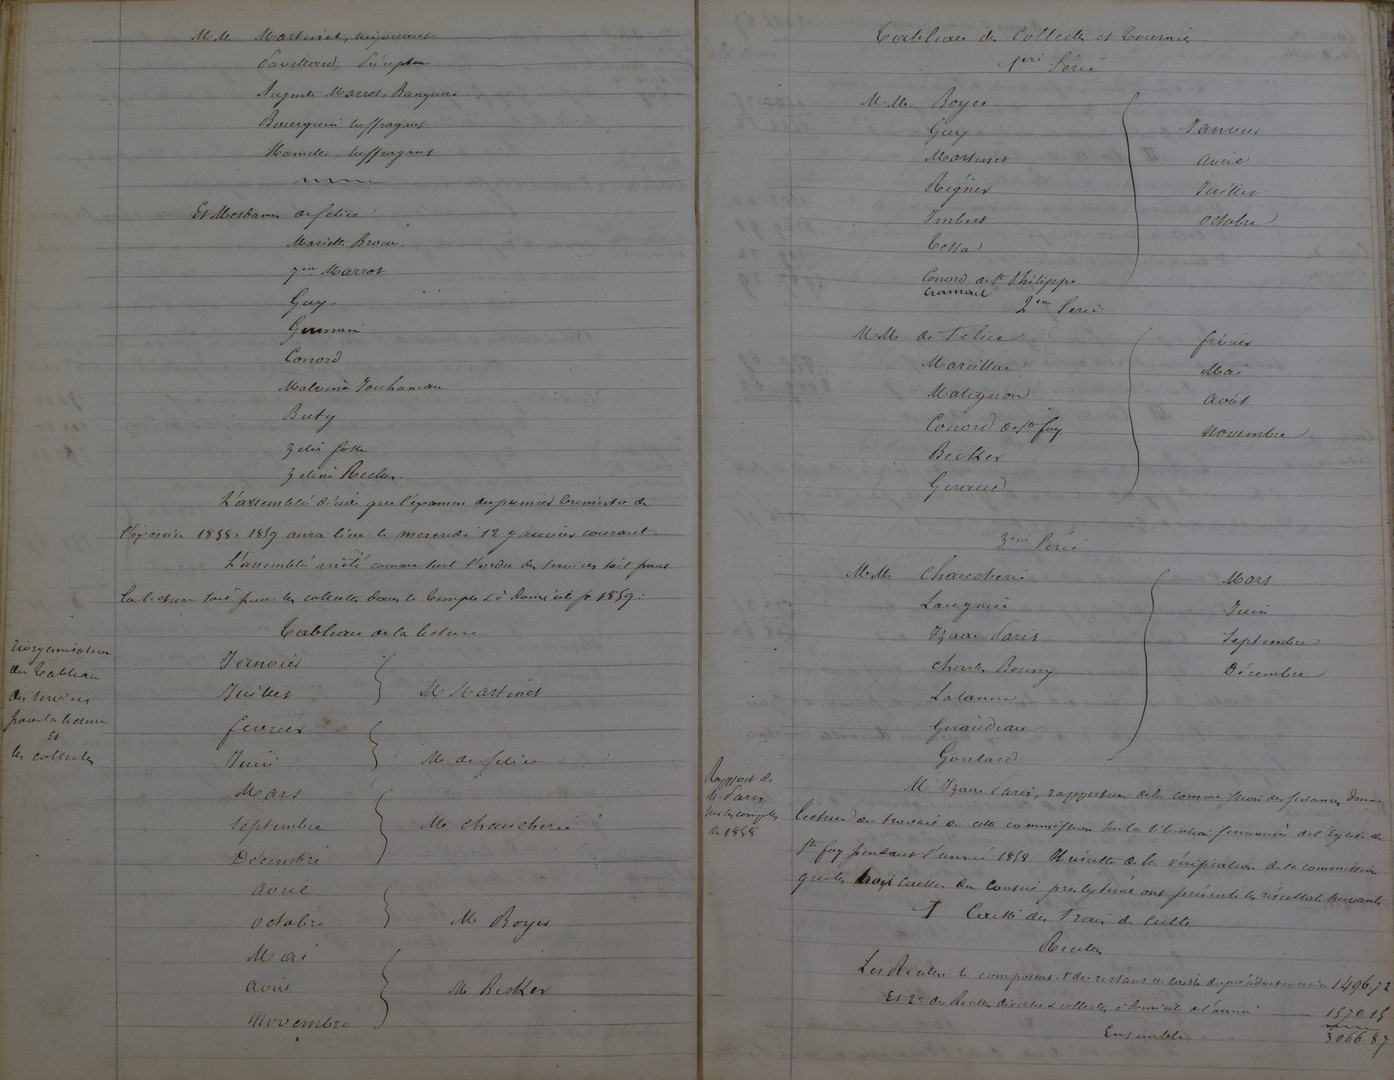 MM Martinet, négociant
Pauvillard, Précepteur
Auguste Marrot, Banquier
Bourguin, suffragant
Hamelin, suffragant
Et Mesdames de félice
Mariette Broca
Marrot
Guy
Germain
Conord
Malvina Jouhaneau
Buty
Zélie
Zéline Becker
L'assemblée décide que l'examen du premier trimestre de
l'exercice 1858-1859 aura lieu le mercredi 12 janvier courant.
L'assemblée arrête comme suit l'ordre des services soit pour
la lecture soit pour les collectes dans le temple & à domicile pr 1859.
Réorganisation
du tableau
des services
pour la lecture
et
les collectes
Tableau de la lecture
Janvier
Juillet
M Martinet
février
Juin
M de félice
Mars
Septembre
Décembre
M Chaucherie
Avril
Octobre
M Boyer
Mai
Août
Novembre
M Becker
Tableau des Collectes et Tournées
1ère Série
MM Boyer
Guy
Martinet
Régnier
Imbert
Testa
Conord de St Philippe
Janvier
Avril
Juillet
Octobre
2ème Série
MM de Félice
Marcillac
Matignon
Conord de Ste foy
Becker
Geraud
février
Mai
Août
Novembre
3ème Série
MM Chaucherie
Laugnie
Izaac Paris
Charles Bonny
Lalanne
Giraudeau
Goulard
Mars
Juin
Septembre
Décembre
Rapport de
M. Paris
sur les comptes
de 1858
M Izaac Paris, rapporteur de la commission des finances donne
lecture du travail de cette commission sur la situation financière de l'Eglise de
Ste foy pendant l'année 1858. Il résulte de la vérification de la commission
que les trois caisses du Conseil presbytéral ont présenté les résultats suivants
I Caisse des frais de culte
Recettes
Les Recettes se composent 1° du restant en caisse du précédent exercice 1496.72
Et 2° des Recettes diverses & collectes à domicile de l'année 1570.15
Ensemble 3066.87